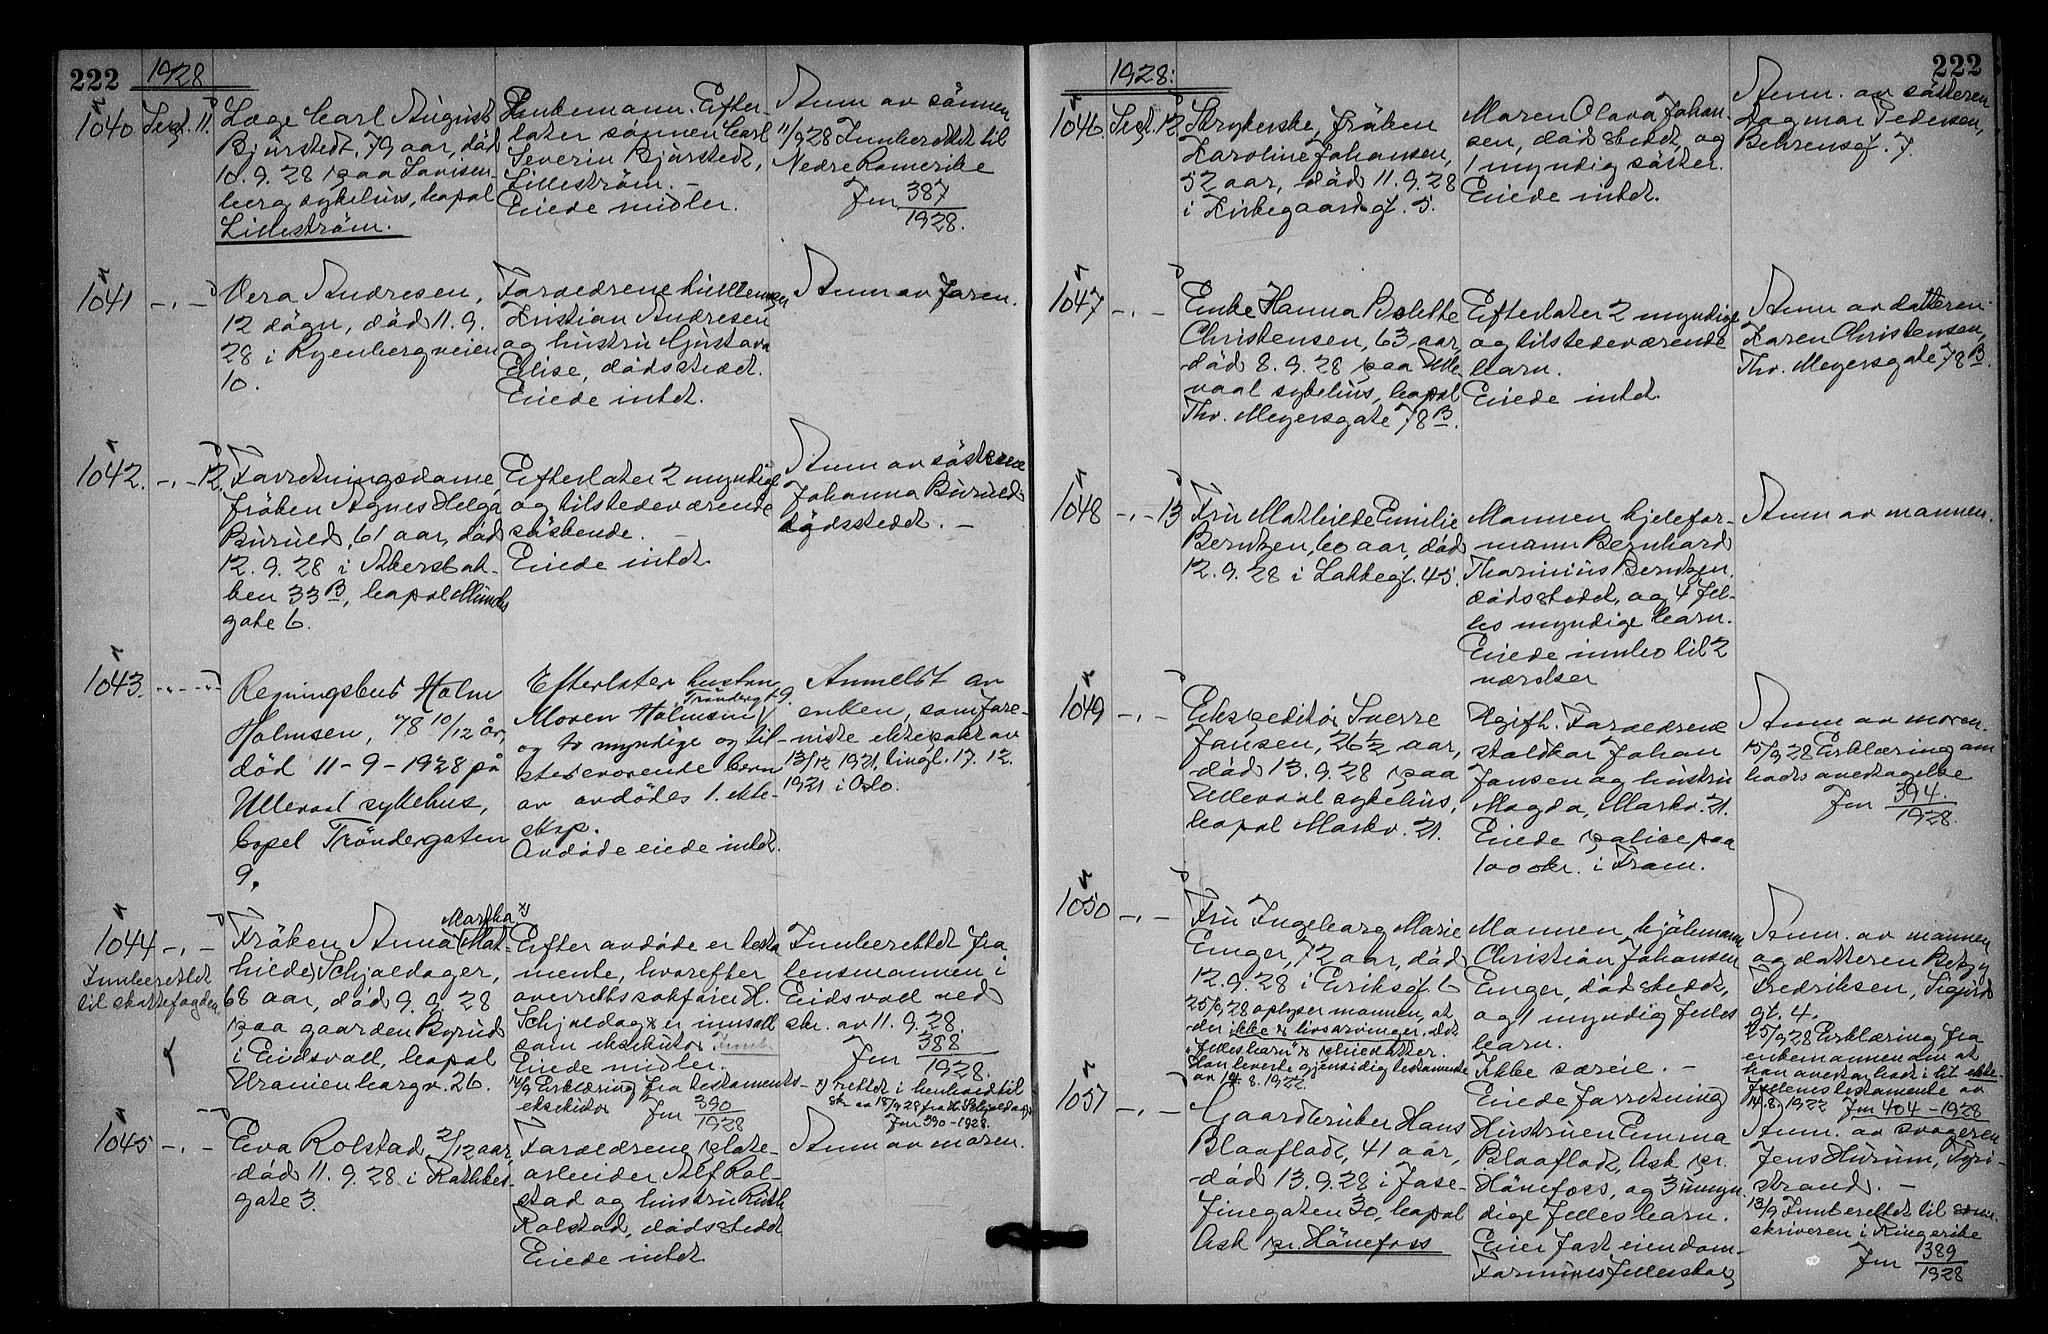 222
1928
1040. Sept. 11.
Læge Carl August
Bjørstedt, 79 aar, død
10.9.28 paa Lovisen-
berg sykehus, bopæl
Lilleström.
Enkemann. Efter-
later sønnen Carl
Severin Bjørstedt,
Lilleström. -
Eiede midler.
Anm av sønnen
11/9 28 Innberettet til
Nedre Romerike
Jnr 387
1928.
1041 -"-
Vera Andresen,
12 døgn, død 11.9.
28 i Ryenbergveien
10.
Forældrene
Kristian Andresen
og hustru Gustava
Elise, dødsstedet.
Eiede intet.
Anm av faren.
1042. -"- 12.
Forretningsdame,
frøken Agnes Helga
Buruld, 61 aar, død
12.9.28 i Akersbak-
ken 33 B, bopæl Munchs
gate 6.
Efterlater 2 myndige
og tilstedeværende
søskende. -
Eiede intet.
Anm av søsteren
Johanna Buruld,
dødsstedet. -
1043. -"-
Regningsbud Holm
Holmsen, 78 10/12 år,
død 11-9-1928 på
Ullevaal sykehus,
bopel Tröndergaten
9.
Efterlater hustru
Tröndergt 9.
Maren Holmsen,
og to myndige og til-
stedeværende barn
av avdödes 1. ekte-
skp.
Avdøde eiede intet.
Anmeldt av
enken, som fore-
viste ektepakt av
13/12 1921, tingl. 17.12.
1921 i Oslo.
1044 -"-
Innberettet
til skiftefogden
Martha x)
Frøken Anna (Mat-
hilde) Schjoldager,
68 aar, død 9.9.28
paa gaarden Byrud
i Eidsvoll, bopæl
Uranienborgv. 26.
Efter avdøde er testa
mente, hvorefter
overrettssakfører H.
Schjoldager er innsatt
som eksekutor
Eiede midler.
14/9 Erklæring fra testaments-
eksekutor Jnr 390
1928
Innberettet fra
lensmannen i
Eidsvoll ved
skr. av 11.9.28.
Jnr 388
1928.
x) rettet i henhold til
skr av 18/9 28 fra H. Schjoldager
Jnr 390-1928.
1045 -"-
Eva Rolstad, 2/12 aar,
død 11.9.28 i Rathkes
gate 3.
Forældrene plate-
arbeider Alf Rol-
stad og hustru Ruth
Rolstad, dødsstedet
Eiede intet
Anm av moren.
222
1928:
1046. Sept. 12
Strykerske, frøken
Karoline Johansen,
52 aar, død 11.9.28
i Kirkegaardsgt. 5.
Maren Olava Johan-
sen, dødsstedet, og
1 myndig søster.
Eiede intet.
Anm. av søsteren
Dagmar Pedersen,
Behrensgt. 7.
1047 -"-
Enke Hanna Bolette
Christensen, 63 aar,
død 8.9.28 paa Ulle-
vaal sykehus, bopæl
Thv. Meyersgate 78 B.
Efterlater 2 myndige
og tilstedeværende
barn.
Eiede intet.
Anm av datteren
Karen Christensen,
Thv. Meyersgate 78 B.
1048 -"- 13
Fru Mathilde Emilie
Berntzen, 60 aar, død
12.9.28 i Lakkegt. 45.
Mannen kjelefor-
mann Bernhard
Berntzen,
dødsstedet, og 4 fel-
les myndige barn.
Eiede innbo til 2
værelser
Anm av mannen.
1049 -"-
Ekspeditør Sverre
Jansen, 26 1/2 aar,
død 13.9.28 paa
Ullevaal sykehus,
bopæl Maskv. 21.
Ugift. Forældrene
staldkar Johan
Jansen og hustru
Magda, Maskv. 21.
Eiede police paa
1000 kr. i Fram.
Anm av moren.
15/9 28 Erklæring om
bodts overtagelse
Jnr 394.
1928.
1050 -"-
Fru Ingeborg Marie
Enger, 72 aar, død
12.9.28 i Eriksgt. 6
25/9 28 oplyser mannen, at
der ikke er livsarvinger, det
"felles barn" er pleiedatter.
Han leverte gjensidig testamente
av 14.8.1922.
Mannen kjølemann
Christian Johansen
Enger, dødsstedet,
og 1 myndig felles
barn.
Ikke særeie. -
Eiede forretning
Anm. av mannen
og datteren Betzy
Fredriksen, Sigurds
gt. 4.
25/9 28 Erklæring fra
enkemannen om at
han overtar boet i h.t. ekte-
fellenes testamente av
14.8.1922 Jnr 404-1928
1051 -"-
Gaardbruker Hans
Blaaflodt, 41 aar,
død 13.9.28 i Jose-
finegaten 30, bopæl
Ask pr. Hönefoss
Hustruen Emma
Blaaflodt, Ask pr.
Hönefoss, og 3 umyn-
dige felles barn.
Eier fast eiendom.
Formues felleskap
Anm. av svogeren
Jens Hurum, Tyri-
strand. -
13/9 Innberettet til sorn-
skriveren i Ringerike
Jnr 389
1928